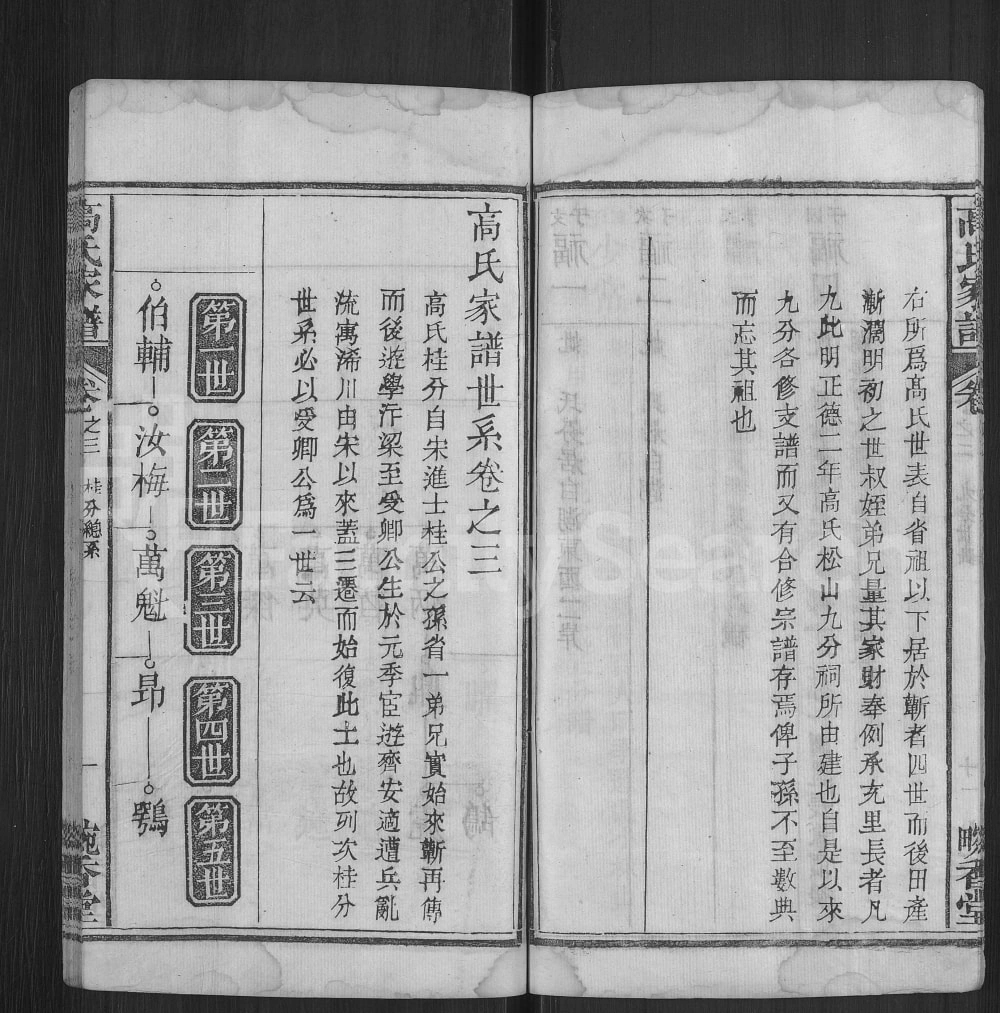 高氏家譜
卷
右所爲髙氏世表自省祖以下居於蘄者四世而後田產
漸濶明初之世叔姪弟兄量其家財奉例承充里長者凡
九此明正德二年高氏松山九分祠所由建也自是以來
九分各修支譜而又有合修宗譜存焉俾子孫不至數典
而忘其祖也
高氏家譜世系卷之三
高氏桂分自宋進士桂公之孫省一弟兄實始來蘄再傳
而後遊學汴梁至受卿公生於元季宦遊齊安適遭兵亂
流寓浠川由宋以來蓋三遷而始復此土也故列次桂分
世系必以受卿公爲一世云
第一世
第二世
第三世
第四世
第五世
伯輔
汝梅
萬魁
昂
鶚
高氏家譜
卷之三
桂分總系
一